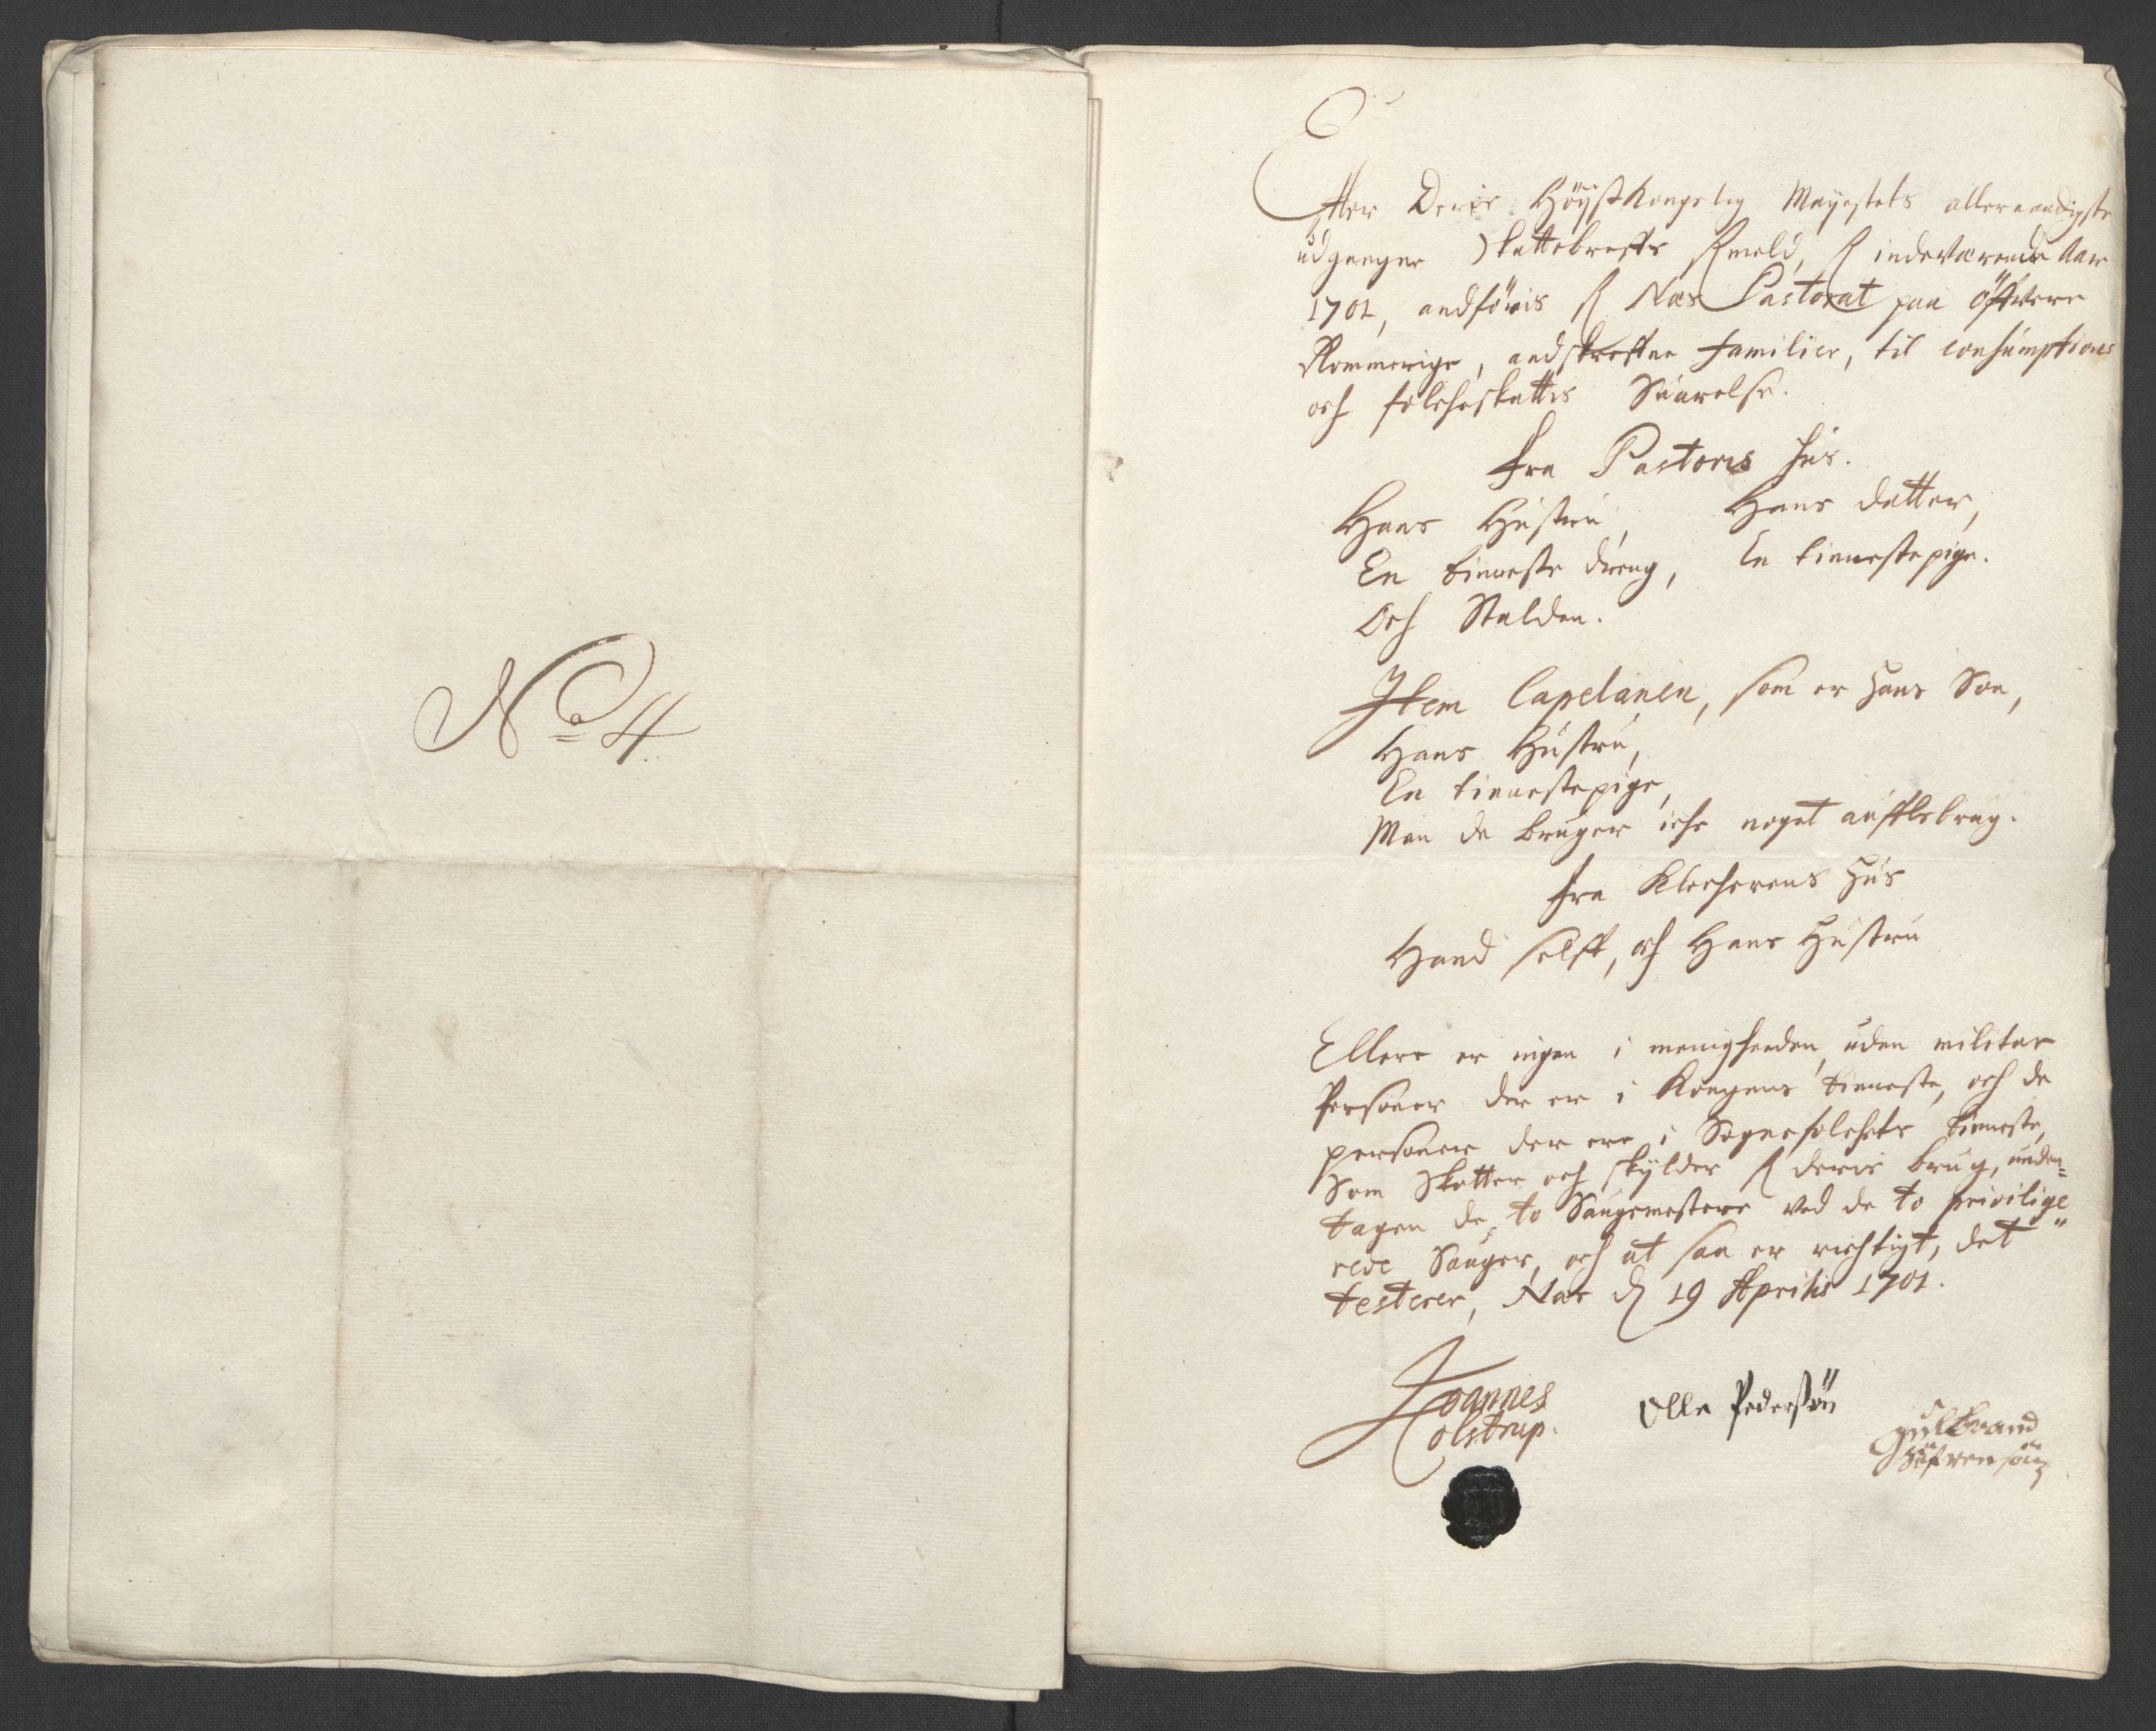 No 4.
Effter Deris Höyst Kongelig Mayestets allernaadigste
udgangne Skattebreffs formeld, for indeværende Aar
1701, andföris for Næs Pastorat paa Öffvere
Rommerige, andskrefne Familier, til Consumptions
och folcheskattis Svarelse.
Fra Pastoris Hus.
Hans Hustru, Hans datter,
En tieneste dreng, En tienestepige.
Och Stalden.
Item Capelanen, som er Hans Sön,
Hans Hustru,
En tienestepige,
Men de bruger iche noget aufflsbrug.
Fra Klocherens Hus
Hand selff, och Hans Hustru
Ellers er ingen i menigheeden, uden militar
Personer der er i Kongens tieneste, och de
personer der ere i Sognefolchets tieneste,
Som Skatter och skylder for deris brug, unden=
tagen de to Saugemestere ved de to privilige
rede Sauger, och at saa er richtigt, det
testerer, Næs d 19 Aprilis 1701.
Joannes
Colstrup.
Olle Pedersön
Gulbrand